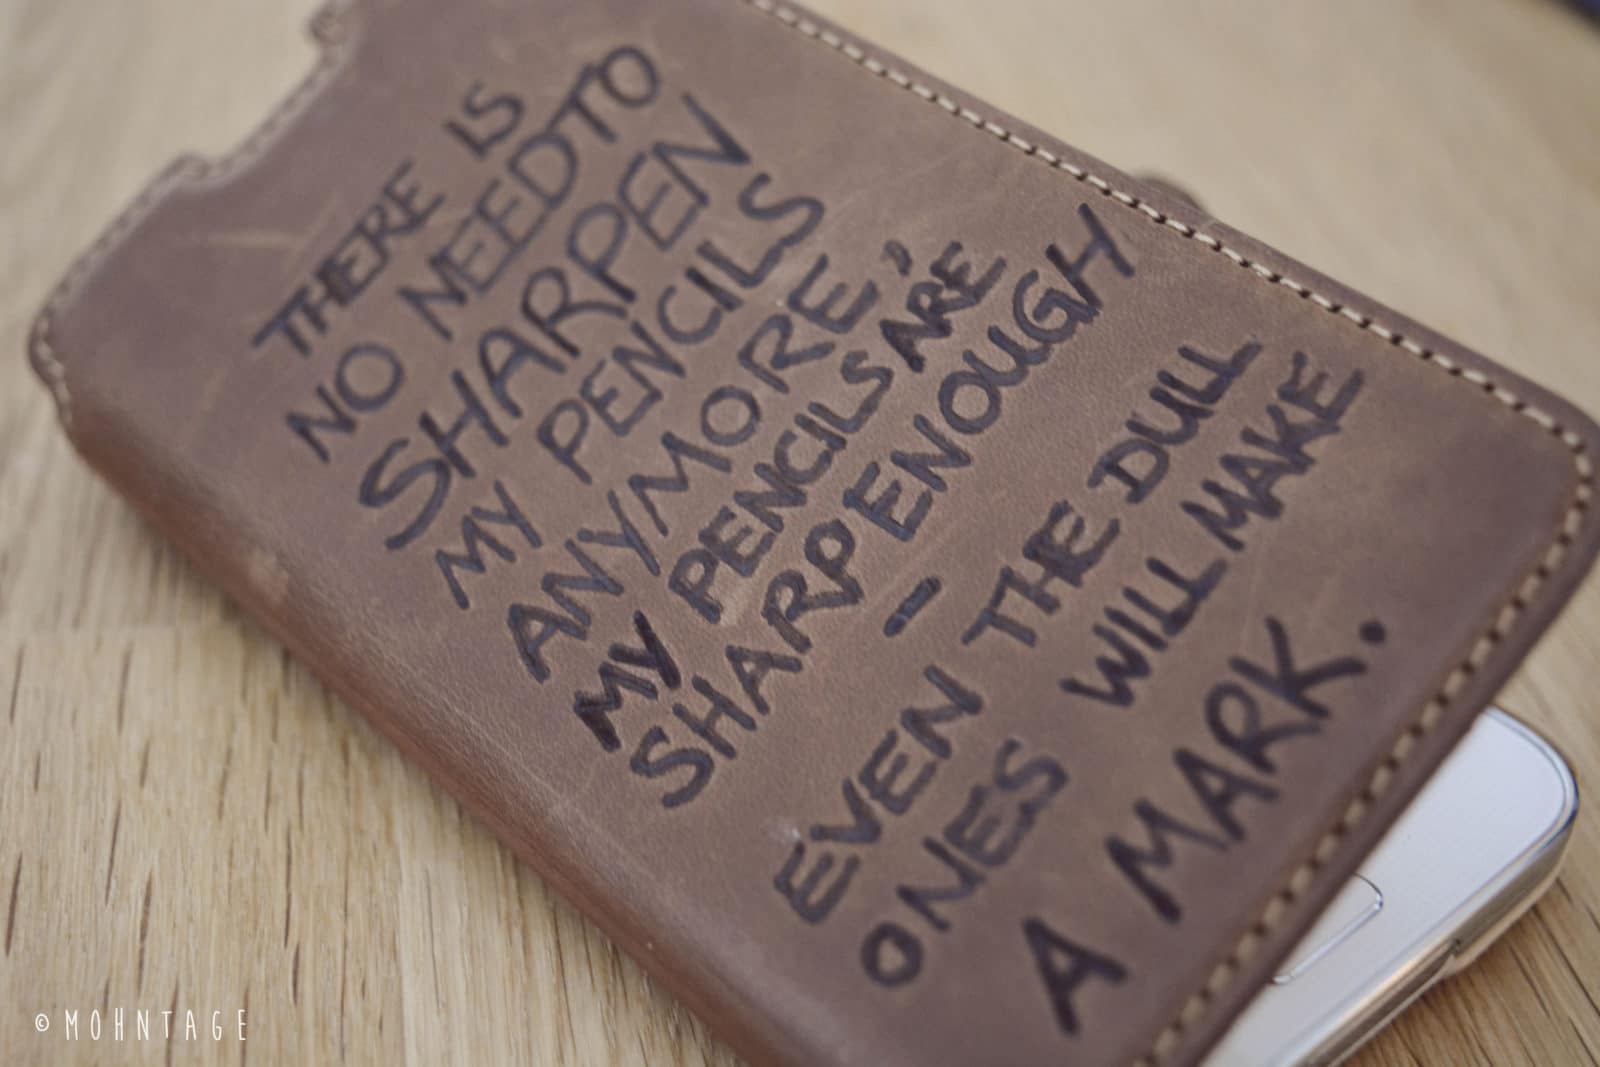 THERE IS
NO NEED TO
SHARPEN
MY PENCILS
ANYMORE,
MY PENCILS ARE
SHARP ENOUGH
–
EVEN THE DULL
ONES WILL MAKE
A MARK.
© MOHNTAGE